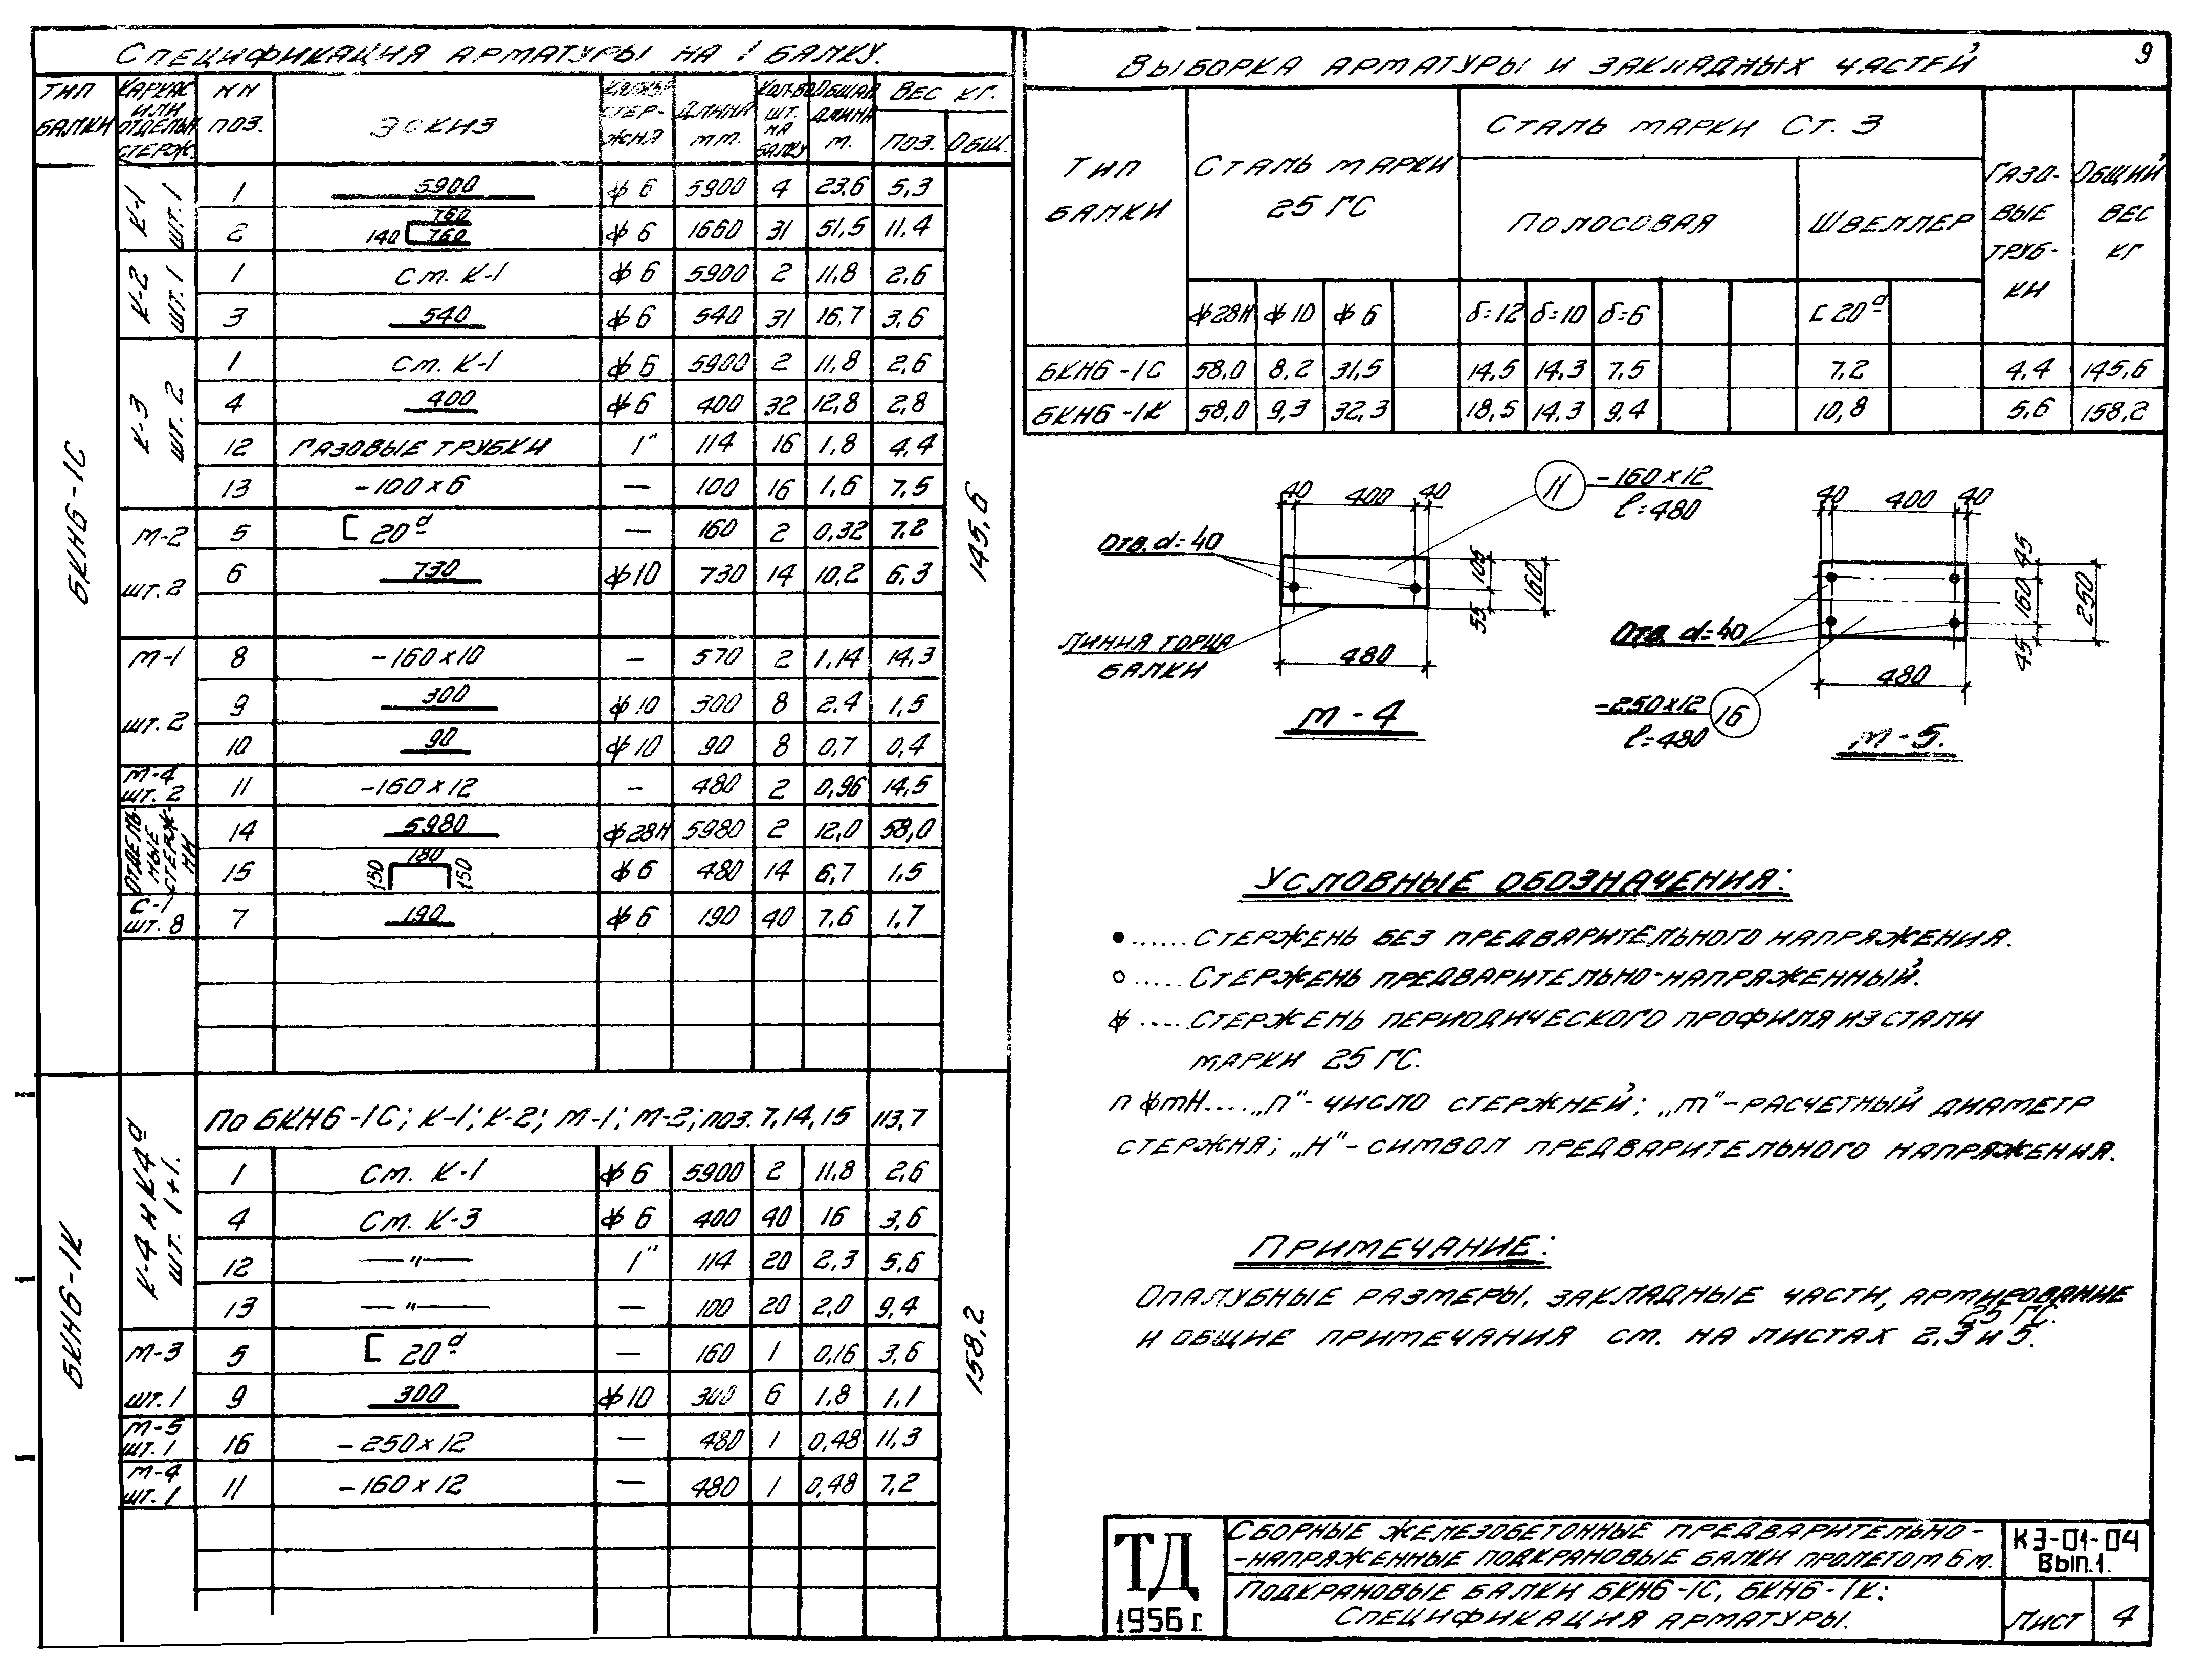 9
Спецификация арматуры на 1 балку.
Тип балки | Каркас или отдельн. стерж. | NN поз. | Эскиз | Калибр стержня | Длина мм. | Кол-во шт. на балку | Общая длина м. | Вес кг. | поз. | Общ.
БКН6-1С
145,6
К-1 шт. 1
1 | 5900 | ф 6 | 5900 | 4 | 23,6 | 5,3
2 | 140 760 760 | ф 6 | 1660 | 31 | 51,5 | 11,4
К-2 шт. 1
1 | См. К-1 | ф 6 | 5900 | 2 | 11,8 | 2,6
3 | 540 | ф 6 | 540 | 31 | 16,7 | 3,6
К-3 шт. 2
1 | См. К-1 | ф 6 | 5900 | 2 | 11,8 | 2,6
4 | 400 | ф 6 | 400 | 32 | 12,8 | 2,8
12 | Газовые трубки | 1" | 114 | 16 | 1,8 | 4,4
13 | -100 x 6 | — | 100 | 16 | 1,6 | 7,5
М-2 шт. 2
5 | [ 20ᵃ | — | 160 | 2 | 0,32 | 7,2
6 | 730 | ф 10 | 730 | 14 | 10,2 | 6,3
М-1 шт. 2
8 | -160 x 10 | — | 570 | 2 | 1,14 | 14,3
9 | 300 | ф 10 | 300 | 8 | 2,4 | 1,5
10 | 90 | ф 10 | 90 | 8 | 0,7 | 0,4
М-4 шт. 2
11 | -160 x 12 | - | 480 | 2 | 0,96 | 14,5
Отдельные стержни
14 | 5980 | ф 28Н | 5980 | 2 | 12,0 | 58,0
15 | 150 180 150 | ф 6 | 480 | 14 | 6,7 | 1,5
С-1 шт. 8
7 | 190 | ф 6 | 190 | 40 | 7,6 | 1,7
БКН6-1К
158,2
По БКН6-1С; К-1; К-2; М-1; М-2; поз. 7, 14, 15 | 113,7
К-4 и К4ᵃ шт. 1+1.
1 | См. К-1 | ф 6 | 5900 | 2 | 11,8 | 2,6
4 | См. К-3 | ф 6 | 400 | 40 | 16 | 3,6
12 | —"— | 1" | 114 | 20 | 2,3 | 5,6
13 | —"— | — | 100 | 20 | 2,0 | 9,4
М-3 шт. 1
5 | [ 20ᵃ | — | 160 | 1 | 0,16 | 3,6
9 | 300 | ф 10 | 300 | 6 | 1,8 | 1,1
М-5 шт. 1
16 | -250 x 12 | — | 480 | 1 | 0,48 | 11,3
М-4 шт. 1
11 | -160 x 12 | — | 480 | 1 | 0,48 | 7,2
Выборка арматуры и закладных частей
Тип балки | Сталь марки 25 ГС | Сталь марки Ст. 3 | Газовые трубки | Общий вес кг
Полосовая | Швеллер
ф28Н | ф 10 | ф 6 | δ=12 | δ=10 | δ=6 | [ 20ᵃ
БКН6-1С | 58,0 | 8,2 | 31,5 | 14,5 | 14,3 | 7,5 | 7,2 | 4,4 | 145,6
БКН6-1К | 58,0 | 9,3 | 32,3 | 18,5 | 14,3 | 9,4 | 10,8 | 5,6 | 158,2
40 400 40
11 -160 x 12
ℓ=480
Отв. d=40
105
55
160
Линия торца
балки
480
М-4
40 400 40
45
160
45
250
Отв. d=40
480
-250 x 12 16
ℓ=480
М-5.
Условные обозначения:
● ...... Стержень без предварительного напряжения.
○ ..... Стержень предварительно-напряженный.
ф .... Стержень периодического профиля из стали
марки 25 ГС.
п ф т Н.... „п"- число стержней; „т"- расчетный диаметр
стержня; „Н"- символ предварительного напряжения.
Примечание:
Опалубные размеры, закладные части, армирование
25 ГС.
и общие примечания см. на листах 2,3 и 5.
ТД
1956 г.
Сборные железобетонные предварительно-
-напряженные подкрановые балки пролетом 6 м.
КЭ-01-04
Вып.1.
Подкрановые балки БКН6-1С, БКН6-1К:
Спецификация арматуры.
Лист 4